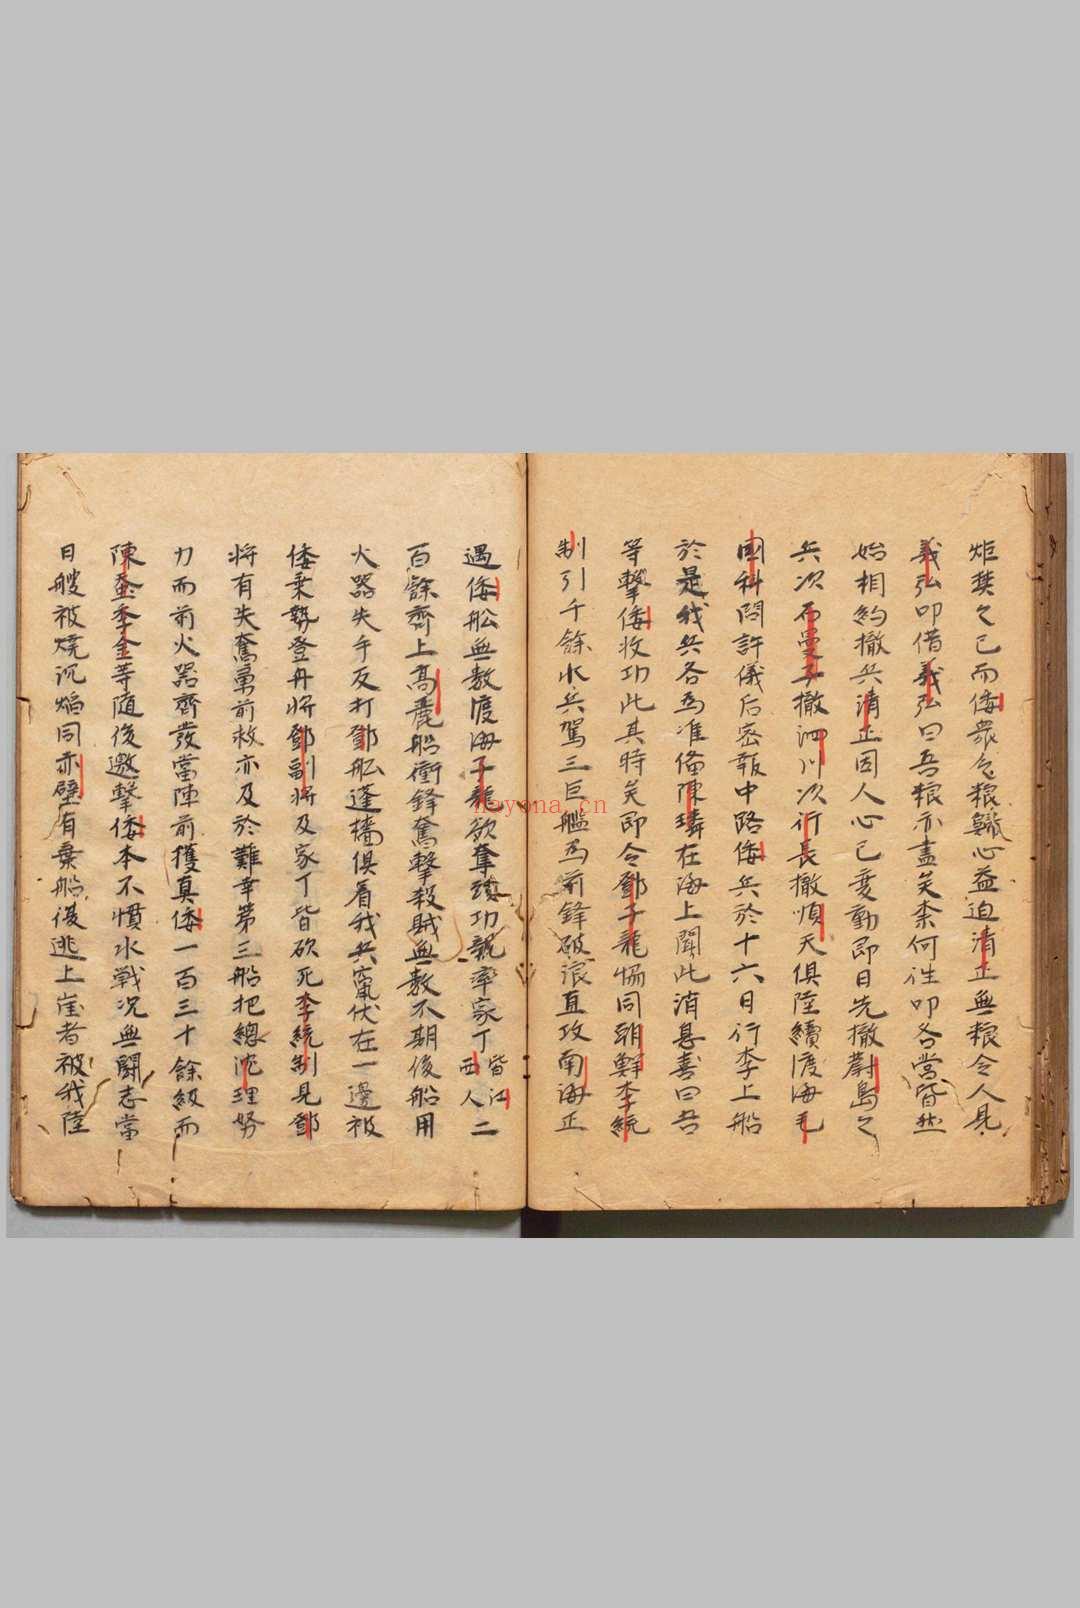 炬焚之已而倭衆乞粮鱶心益迫清正無粮令人見
義弘叩借義弘曰吾粮亦盡矣柰何往叩各營皆然
始相約撤兵清正因人心已变動即日先撤蔚島之
兵次石曼子撤泗川次行長撤順天俱陸續渡海毛
國科問許儀后密報中路倭兵於十六日行李上船
於是我兵各為准備陳璘在海上聞此消息喜曰吾
等擊倭收功此其時矣即令鄧子龍恊同朝鮮李統
制引千餘水兵駕三巨艦為前鋒破浪直攻南海正
遇倭舡無数渡海子龍欲奪頭功親率家丁皆江西人二
百餘齊上高麗船衝鋒奮擊殺賊無数不期後船用
火器失手反打鄧舡蓬檣俱着我兵竄伏在一邊被
倭乗勢登舟將鄧副將及家丁皆砍死李統制見鄧
將有失奮勇前救亦及於難幸第三船把總沈理努
力而前火器齊發當陣前獲真倭一百三十餘級而
陳蚕季金等随後邀擊倭本不慣水戦况無鬪志當
日艘被燒沉熖同赤壁有棄船復逃上崖者被我陸
nayona.cn